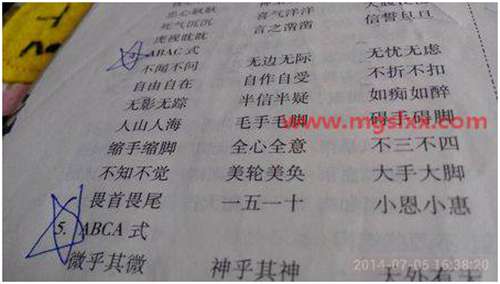 喜气洋洋
死气沉沉 言之凿凿 信誓旦旦
虎视眈眈
ABAC 式
不闻不问 无边无际 无忧无虑
自由自在 自作自受 不折不扣
无影无踪 半信半疑 如痴如醉
www.mgslxx.com
人山人海 毛手毛脚 碍手碍脚
缩手缩脚 全心全意 不三不四
不知不觉 美轮美奂 大手大脚
畏首畏尾 一五一十 小恩小惠
5. ABCA 式
微乎其微 神乎其神 天外有天
2014-07-05 16:38:20